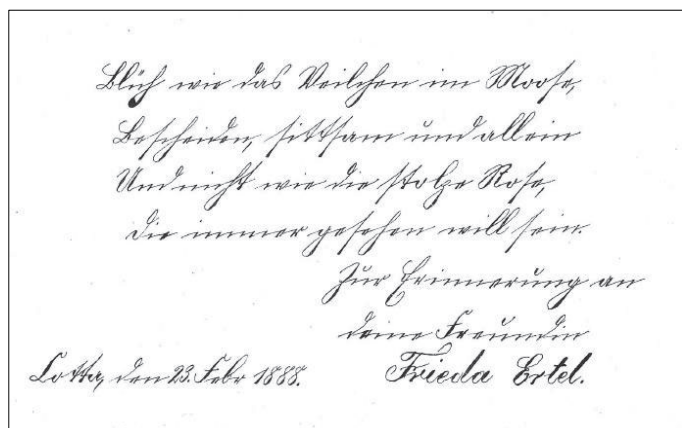 Blüh wie das Veilchen im Moose,
Bescheiden, sittsam und allein
Und nicht wie die stolze Rose,
Die immer gesehen will sein.
Zur Erinnerung an
deine Freundin
Lotta, den 23. Febr 1888. Frieda Ertel.